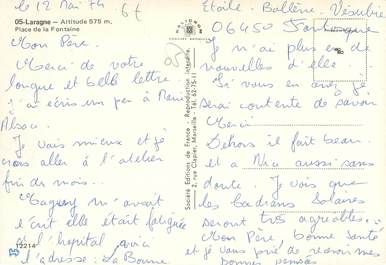 le 12 Mai 74
05-Laragne — Altitude 575 m,
Place de la Fontaine
Mon Père.
Merci de votre
longue et belle lettre
j'ai écris un peu à
Alsace.
Je vais mieux et je
vais aller à l'atelier
fin du mois.
m'avait
écrit elle était fatiguée
l'hopital voici
l'adresse : La Bonne
12214
Société Editions de France - Reproduction interdite.
2, rue Clapier, Marseille - Tél. 62-75-11
Etoile. Bollène. Vésubie
06450
Je n'ai plus eu de
nouvelles d'elle.
Si vous en avez je
serai contente de savoir
Merci
Dehors il fait beau
et à Nice aussi sans
doute. Je vois que
les Cadrans Solaires
seront très agréables.
Mon Père, bonne santé
et je vous prie de recevoir mes
bonnes pensées